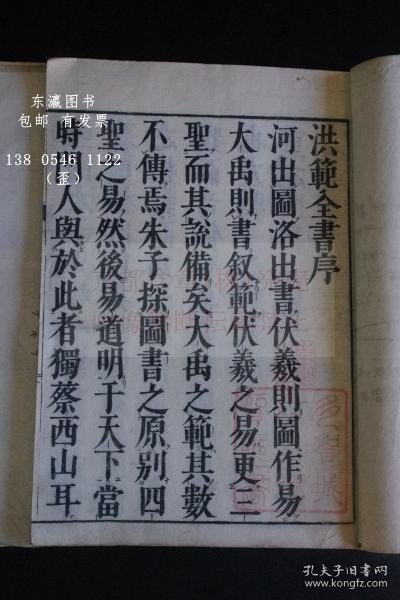 洪範全書序
河出圖洛出書伏羲則圖作易
大禹則書叙範伏羲之易更三
聖而其說備矣大禹之範其數
不傳焉朱子探圖書之原別四
聖之易然後易道明于天下當
時之人與於此者獨蔡西山耳
东瀛图书
包邮 有发票
138 0546 1122
(歪)
孔夫子旧书网
www.kongfz.com